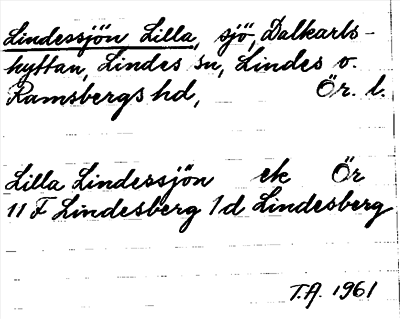 Lindessjön Lilla, sjö, Dalkarls-
hyttan, Lindes sn, Lindes o.
Ramsbergs hd, Ör. l.
Lilla Lindessjön ek Ör
11 F Lindesberg 1 d Lindesberg
T.A. 1961